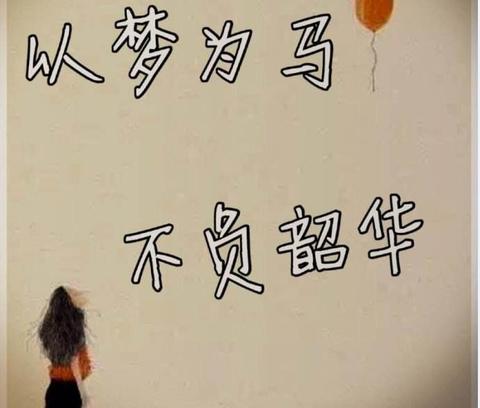 以梦为马
不员韶华